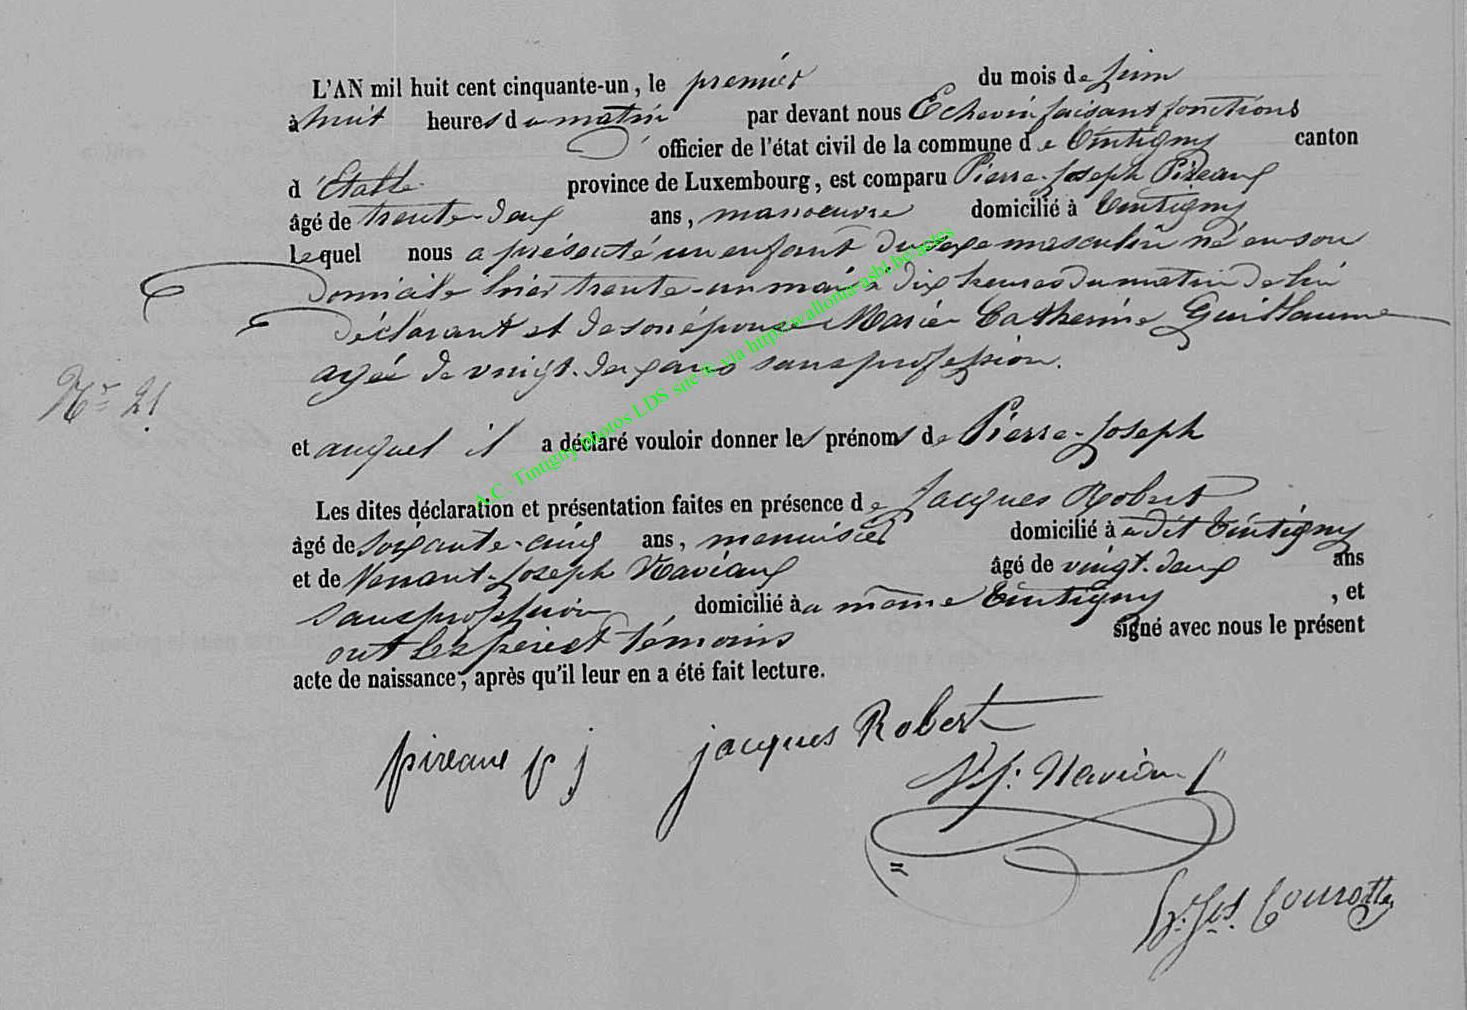 L'AN mil huit cent cinquante-un, le premier du mois de Juin
à huit heures du matin par devant nous Echevin faisant fonctions
d' officier de l'état civil de la commune de Tintigny canton
d'Etalle province de Luxembourg, est comparu Pierre-Joseph Pireaux
âgé de trente-deux ans, manoeuvre domicilié à Tintigny
Lequel nous a présenté un enfant du sexe masculin né en son
Domicile hier trente-un mai à dix heures du matin de lui
Déclarant et de son épouse Marie Catherine Guillaume
agée de vingt-six ans sans profession.
Nr 21
et auquel il a déclaré vouloir donner les prénoms de Pierre-Joseph
Les dites déclaration et présentation faites en présence de Jacques Robert
âgé de soixante-cinq ans, menuisier domicilié à a dit Tintigny
et de Joseph Naviaux âgé de vingt-deux ans
sans profession domicilié à a même Tintigny, et
ont les père et témoins signé avec nous le présent
acte de naissance, après qu'il leur en a été fait lecture.
pireaux p j jacques Robert
Naviaux
A.C. Tintigny photos LDS mise en via http://wallonia-asbl.be/actes